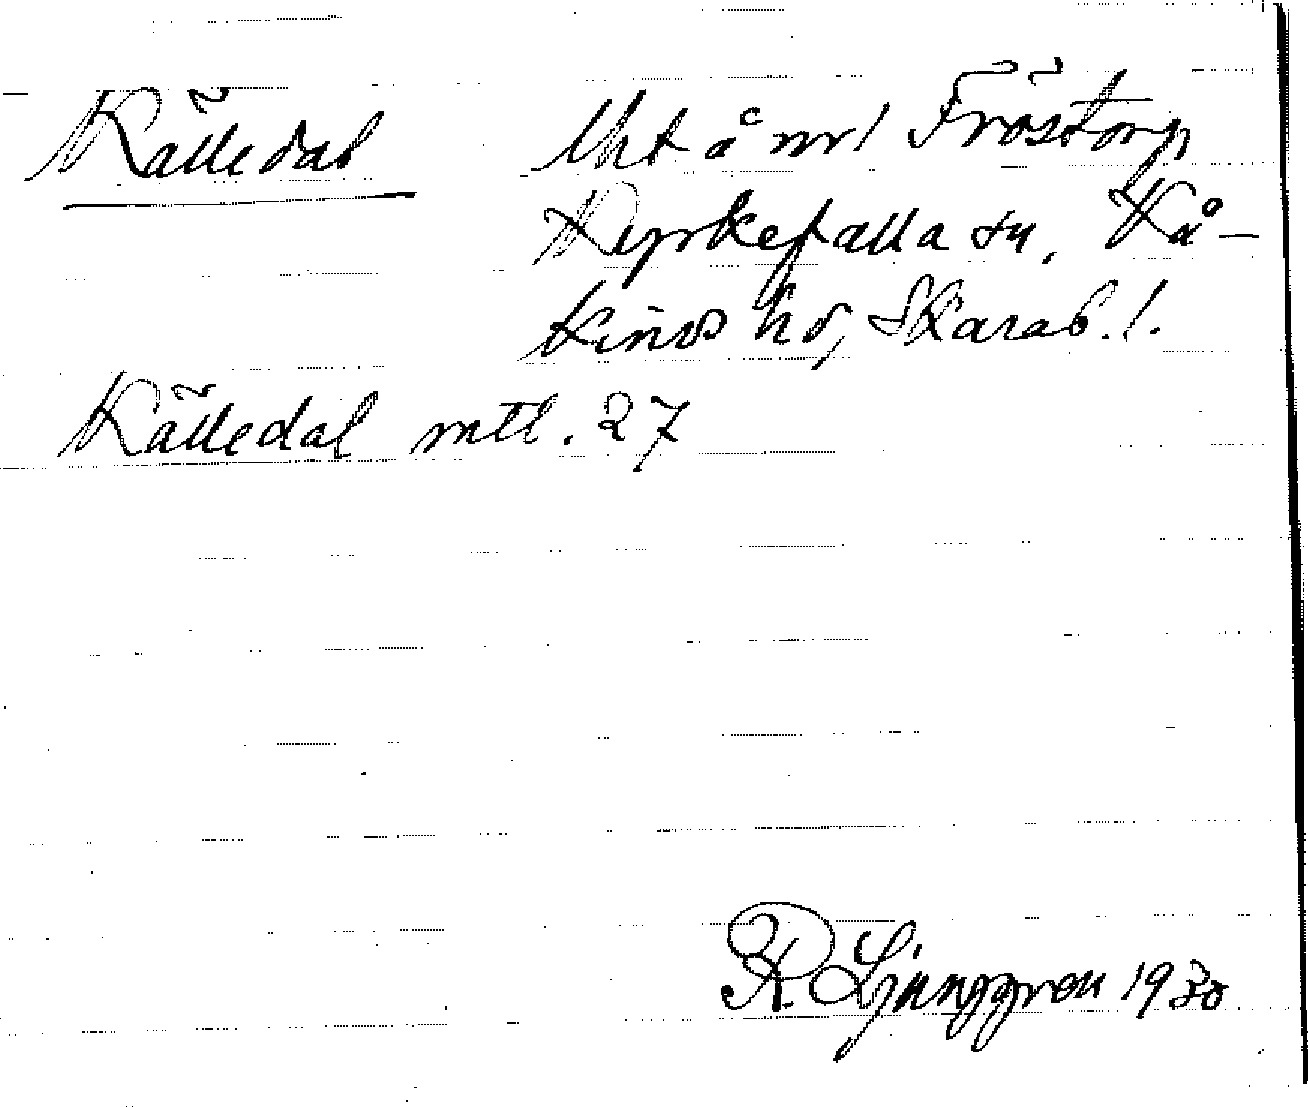 Källedal Uht å nr 1 Fröstorp,
Kyrkefalla sn, Kå-
kinds hd, Skarab. l.
Källedal mtl. 27
R. Ljunggren 1930